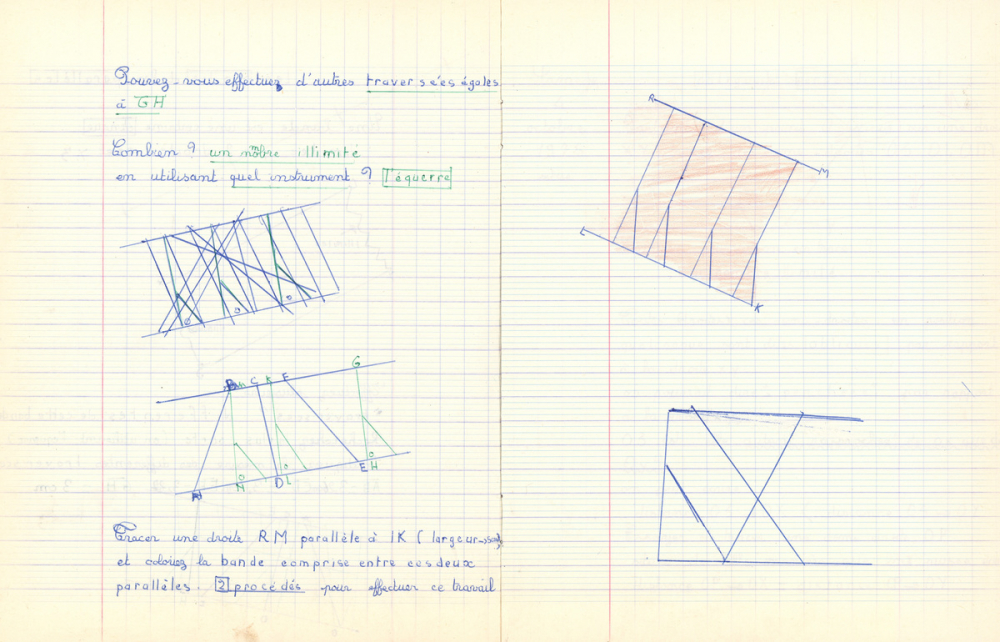 Pouvez-vous effectuez d'autres traversées égales
à GH
Combien ? un nombre illimité
en utilisant quel instrument ? l'équerre
B m C K F G
A N D L E H
Tracer une droite RM parallèle à IK (largeur
et coloriez la bande comprise entre ces deux
parallèles. 2 procédés pour effectuer ce travail
R
M
K